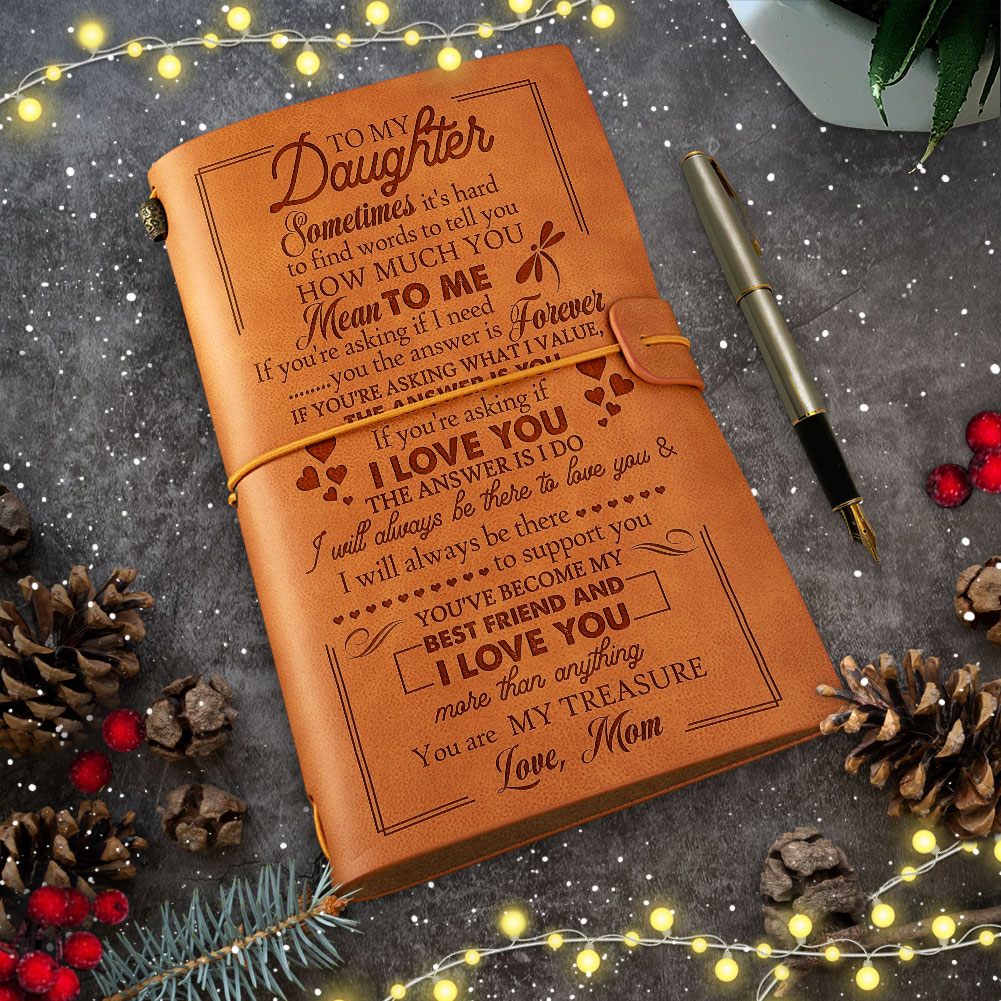 TO MY
Daughter
Sometimes it's hard
to find words to tell you
HOW MUCH YOU
Mean TO ME
If you're asking if I need
........you the answer is Forever
IF YOU'RE ASKING WHAT I VALUE,
THE ANSWER IS YOU
If you're asking if
I LOVE YOU
THE ANSWER IS I DO
I will always be there to love you &
I will always be there
to support you
YOU'VE BECOME MY
BEST FRIEND AND
I LOVE YOU
more than anything
You are MY TREASURE
Love, Mom